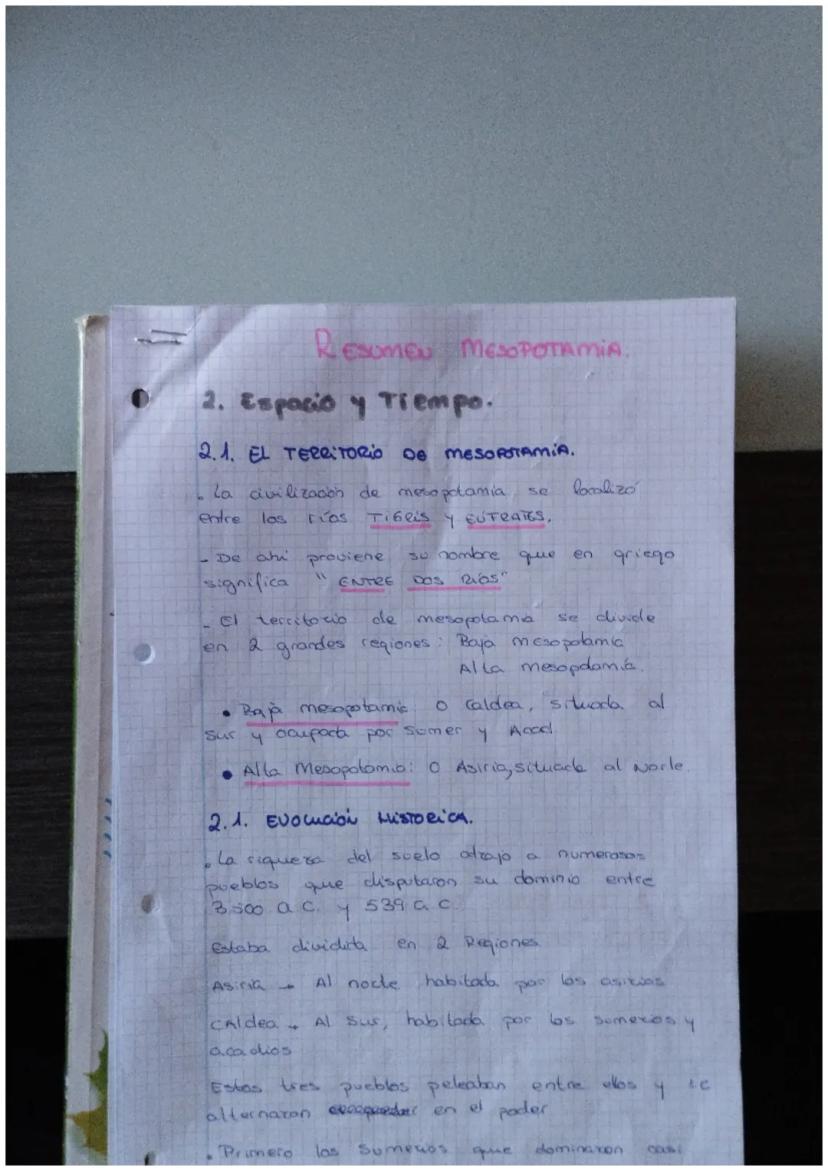 RESUMEN MESOPOTAMIA.
2. Espacio y Tiempo.
2.1. EL TERRITORIO DE MESOPOTAMIA.
. La civilización de mesopotamia se localizó
entre los ríos TIGRIS y EUTRATES.
- De ahí proviene su nombre que en griego
significa "ENTRE DOS RIOS"
- El territorio de mesopotamia se divide
en 2 grandes regiones: Baja mesopotamia
Alta mesopotamia.
• Baja mesopotamia o Caldea, situada al
sur y ocupada por Sumer y Acad.
• Alta Mesopotamia: o Asiria, situada al Norte.
2.1. EVOLUCIÓN HISTORICA.
. La riqueza del suelo atrajo a numerosos
pueblos que disputaron su dominio entre
3500 a.C. y 539 a.C.
Estaba dividida en 2 Regiones
Asiria → Al norte habitada por los asirios
CAldea → Al sur, habitada por los sumerios y
acadios
Estos tres pueblos peleaban entre ellos y se
alternaron en el poder
. Primero los Sumerios que dominaron casi